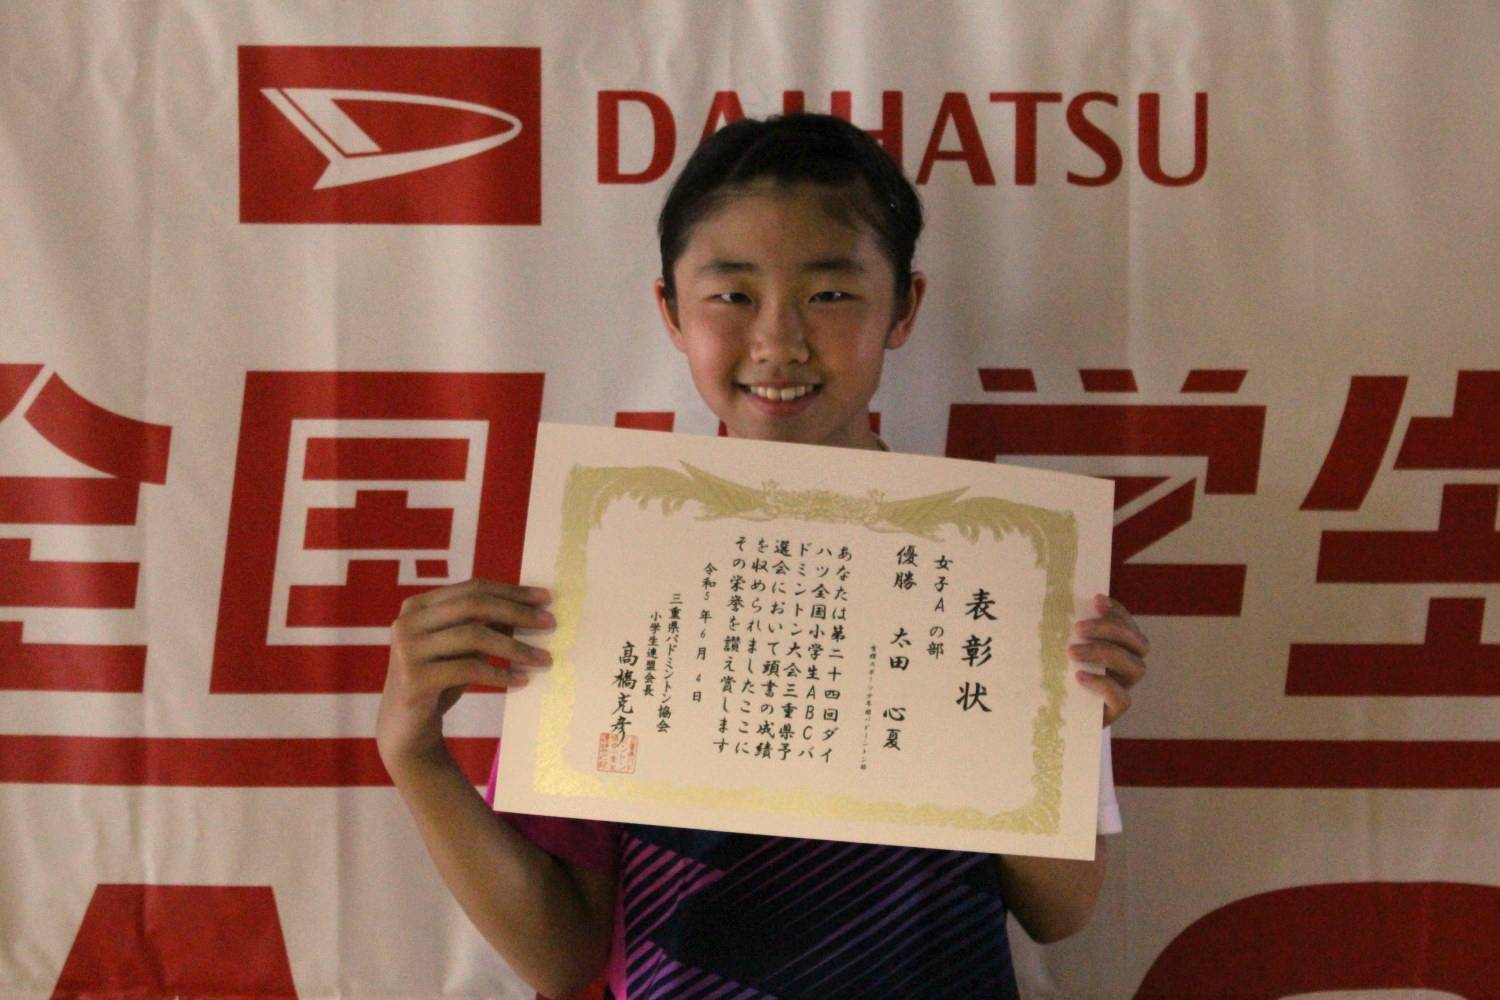 DAIHATSU
全国小学生
表彰状
女子Aの部
優勝 太田 心夏
あなたは第二十四回ダイ
ハツ全国小学生ABCバ
ドミントン大会三重県予
選会において頭書の成績
を収められましたここに
その栄誉を讃え賞します
令和5年6月4日
三重県バドミントン協会
小学生連盟会長
高橋克彦